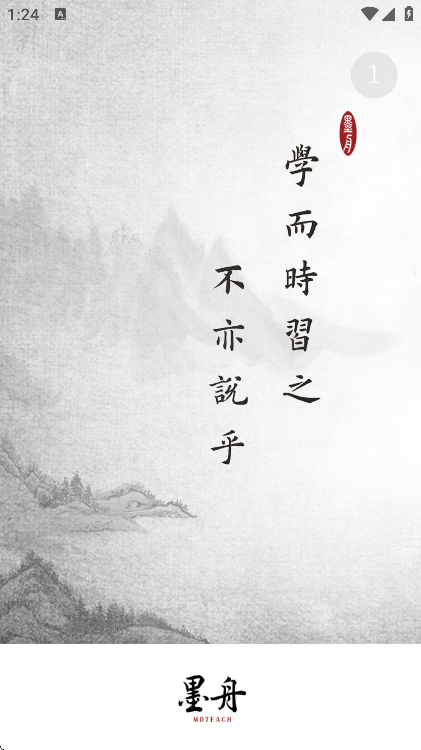 1:24
1
學而時習之
不亦說乎
墨舟
MOTEACH